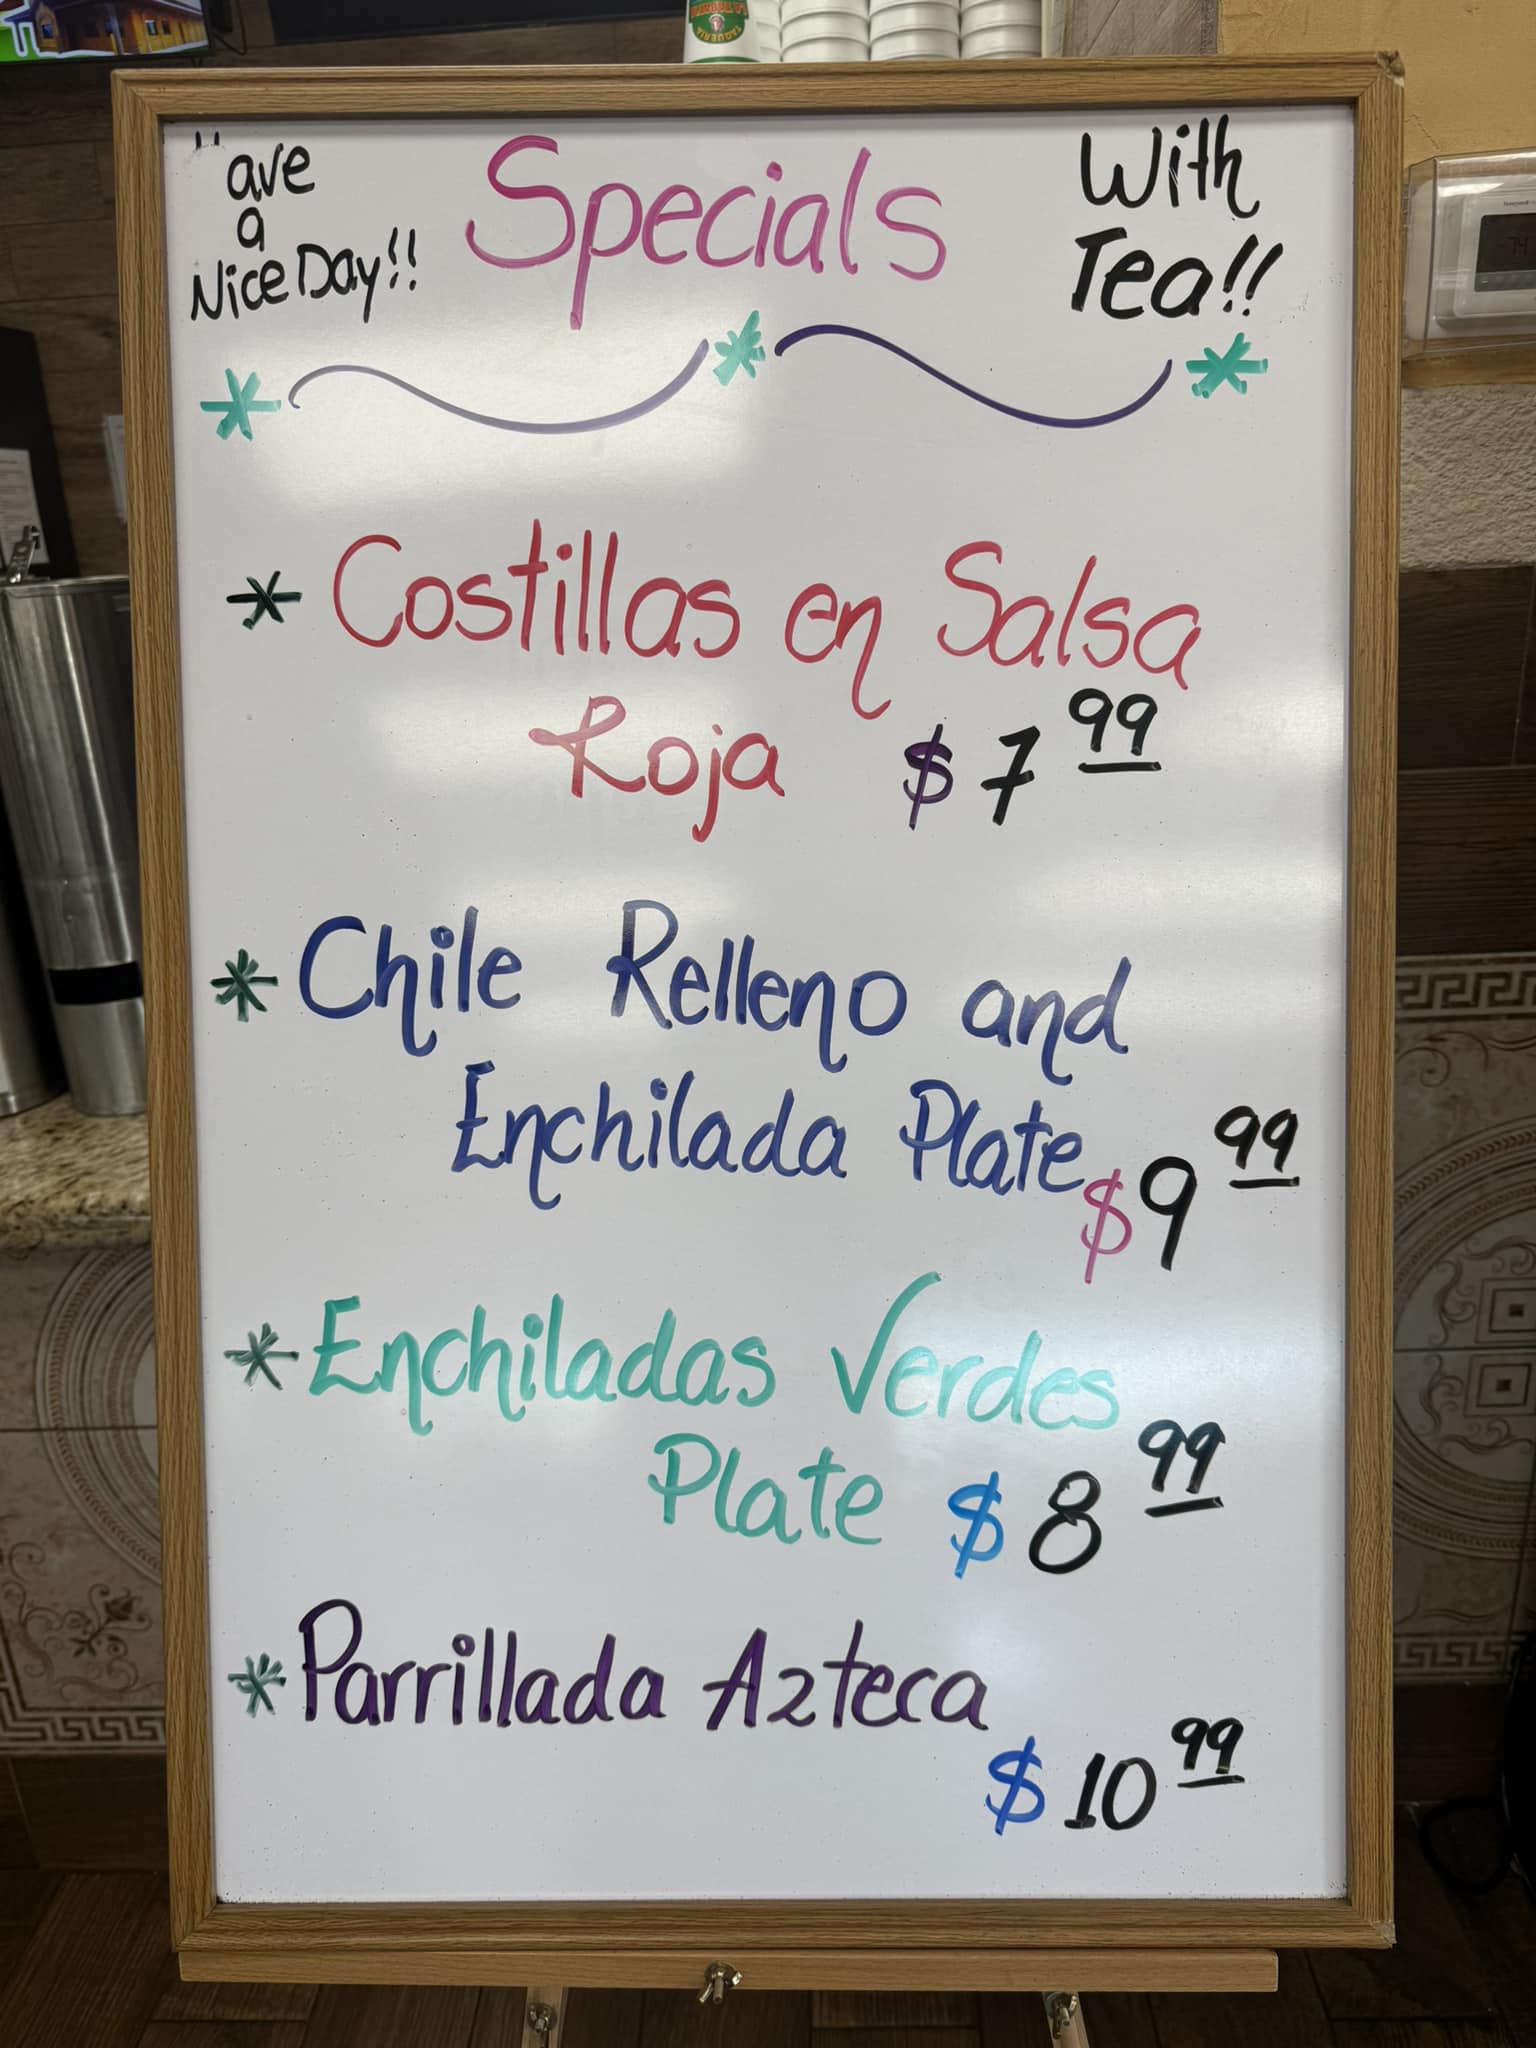 Have
a
Nice Day!!
Specials
With
Tea!!
* Costillas en Salsa
Roja $7.99
* Chile Relleno and
Enchilada Plate $9.99
* Enchiladas Verdes
Plate $8.99
* Parrillada Azteca
$10.99
TAQUERIA